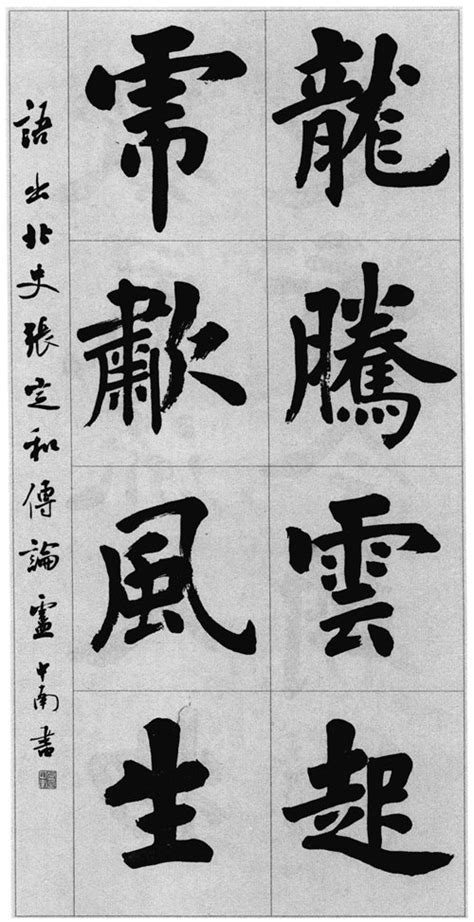 龍騰雲起
虎歗風生
語出北史張定和傳論盧中南書